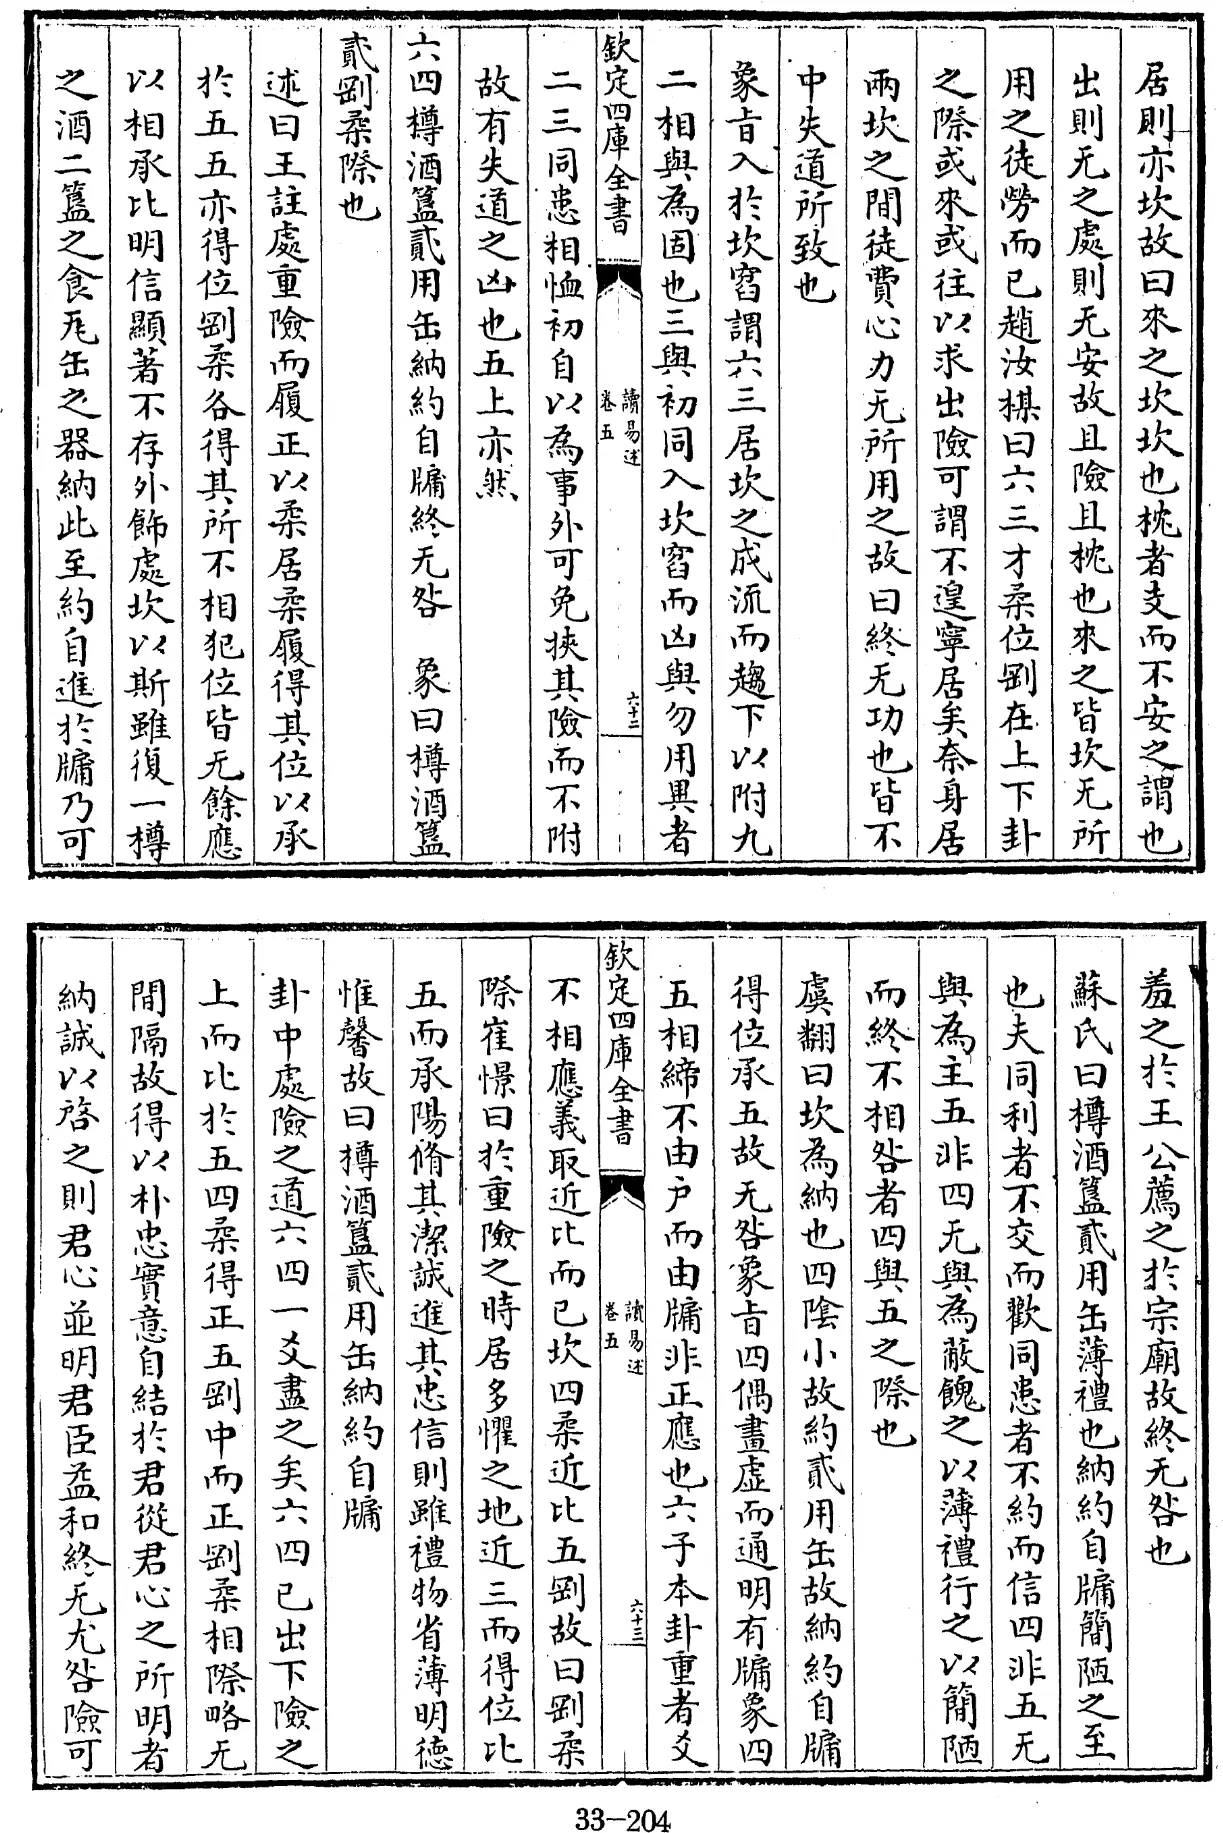 居則亦坎故曰來之坎坎也枕者支而不安之謂也
出則无之處則无安故且險且枕也來之皆坎无所
用之徒勞而已趙汝楳曰六三才柔位剛在上下卦
之際或來或往以求出險可謂不遑寧居矣奈身居
兩坎之間徒費心力无所用之故曰終无功也皆不
中失道所致也
象旨入於坎窞謂六三居坎之成流而趨下以附九
二相與為固也三與初同入坎窞而凶與勿用異者
欽定四庫全書
讀易述
卷五
六十二
二三同患相恤初自以為事外可免挾其險而不附
故有失道之凶也五上亦然
六四樽酒簋貳用缶納約自牖終无咎 象曰樽酒簋
貳剛柔際也
述曰王註處重險而履正以柔居柔履得其位以承
於五五亦得位剛柔各得其所不相犯位皆无餘應
以相承比明信顯著不存外飾處坎以斯雖復一樽
之酒二簋之食瓦缶之器納此至約自進於牖乃可
羞之於王公薦之於宗廟故終无咎也
蘇氏曰樽酒簋貳用缶薄禮也納約自牖簡陋之至
也夫同利者不交而歡同患者不約而信四非五无
與為主五非四无與為蔽餽之以薄禮行之以簡陋
而終不相咎者四與五之際也
虞翻曰坎為納也四陰小故約貳用缶故納約自牖
得位承五故无咎象旨四偶畫虛而通明有牖象四
五相締不由户而由牖非正應也六子本卦重者爻
欽定四庫全書
讀易述
卷五
六十三
不相應義取近比而已坎四柔近比五剛故曰剛柔
際崔憬曰於重險之時居多懼之地近三而得位比
五而承陽脩其潔誠進其忠信則雖禮物省薄明德
惟馨故曰樽酒簋貳用缶納約自牖
卦中處險之道六四一爻盡之矣六四已出下險之
上而比於五四柔得正五剛中而正剛柔相際略无
間隔故得以朴忠實意自結於君從君心之所明者
納誠以啓之則君心並明君臣益和終无尤咎險可
33-204